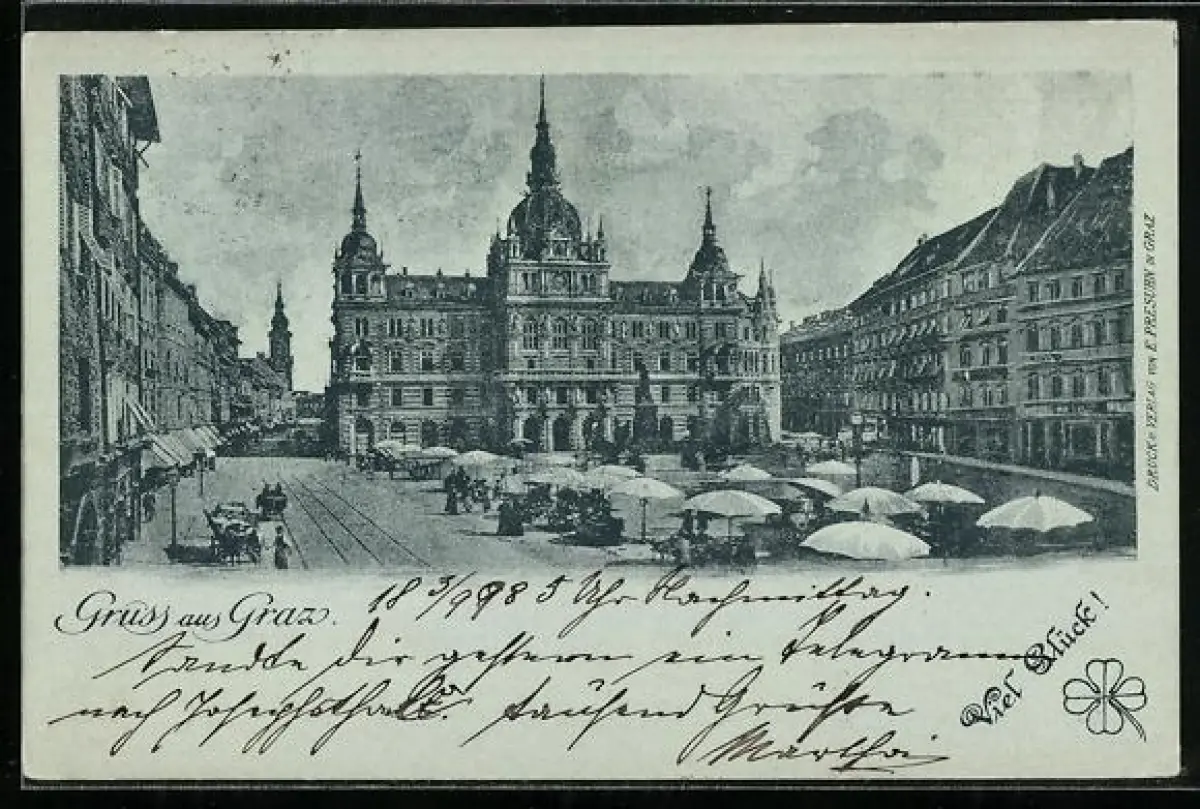 DRUCK u. VERLAG VON E. PRESUHN IN GRAZ
Gruss aus Graz.
18 3/9 98 5 Uhr Nachmittag.
Sandte dir gestern ein Telegramm
nach Josephsthal. tausend Grüße
Martha
Viel Glück!